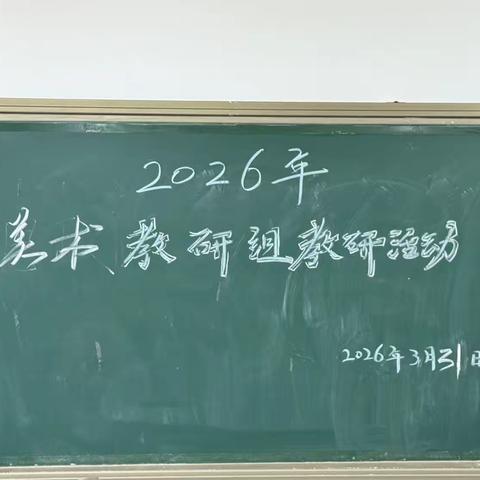 2026年
美术教研组教研活动
2026年3月31日